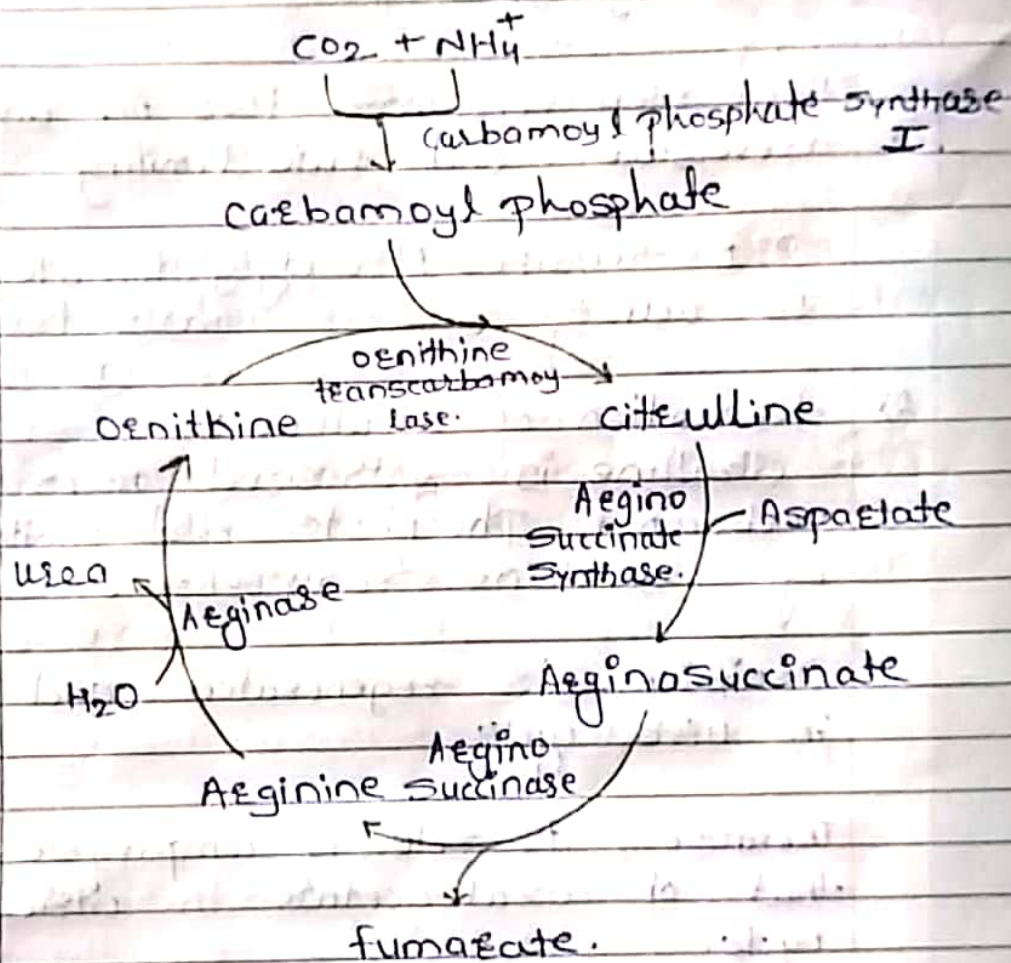 CO2 + NH4+
Carbamoyl phosphate synthase
I
Carbamoyl phosphate
ornithine
transcarbamoy
lase.
Ornithine
citrulline
Argino
Succinate
Synthase.
Aspartate
Urea
Arginase
H2O
Arginosuccinate
Argino
Arginine
Succinase
fumarate.